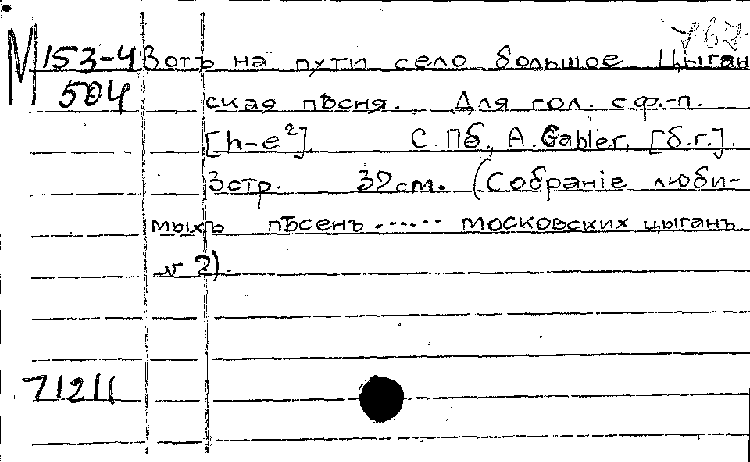 762
М 153-4 Вотъ на пути село большое Цыган
504 ская пѣсня. Для гол. с ф.-п.
[h-e²]. С.Пб, A. Gabler, [б.г.].
3 стр. 32 cm. (Собраніе люби-
мыхъ пѣсенъ ...... московских цыганъ
№ 2).
71211